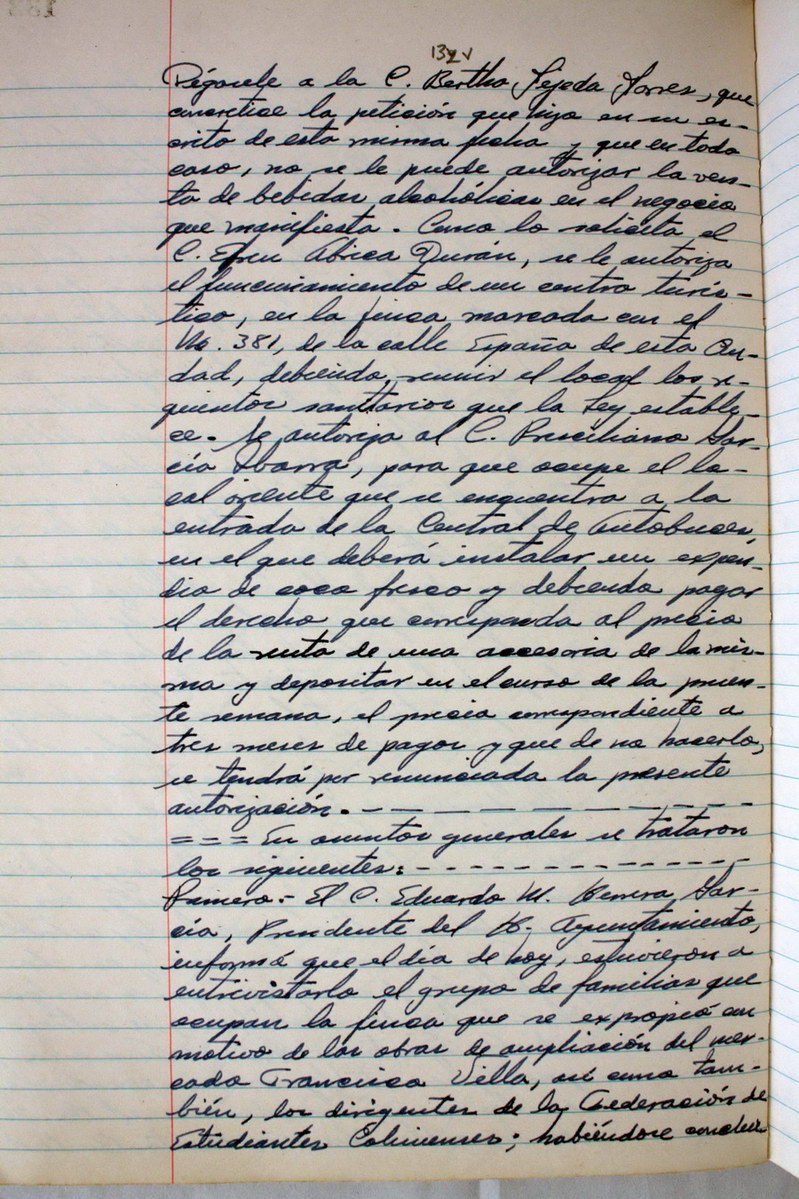 132v
Dígasele a la C. Bertha Tejeda Torres, que
concretice la petición que hizo en su es-
crito de esta misma fecha y que en todo
caso, no se le puede autorizar la ven-
ta de bebidas alcohólicas en el negocio
que manifiesta. Como lo solicita el
C. Efren Abrica Durán, se le autoriza
el funcionamiento de un centro turís-
tico, en la finca marcada con el
No. 381, de la calle España de esta Ciu-
dad, debiendo reunir el local los re-
quisitos sanitarios que la Ley estable-
ce. Se autoriza al C. Prisciliano Gar-
cía Ibarra, para que ocupe el lo-
cal oriente que se encuentra a la
entrada de la Central de Autobuses,
en el que deberá instalar un expen-
dio de coco fresco y debiendo pagar
el derecho que corresponda al precio
de la renta de una accesoria de la mis-
ma y depositar en el curso de la presen-
te semana, el precio correspondiente a
tres meses de pagos y que de no hacerlo,
se tendrá por renunciada la presente
autorización. - - - - - - -
= = = En asuntos generales se trataron
los sigientes: - - - - - - - - - - - - - -
Primero.- El C. Eduardo M. Herrera Gar-
cía, Presidente del H. Ayuntamiento,
informó que el día de hoy, estuvieron a
entrevistarlo el grupo de familias que
ocupan la finca que se expropió con
motivo de las obras de ampliación del mer-
cado Francisco Villa, así como tam-
bién, los dirigentes de la Federación de
Estudiantes Colimenses; habiéndose conclui-